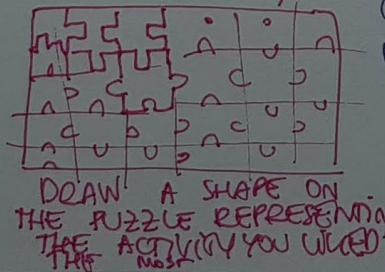 DRAW A SHAPE ON
THE PUZZLE REPRESENTIN
THE ACTIVITY YOU LIKED
THE MOST